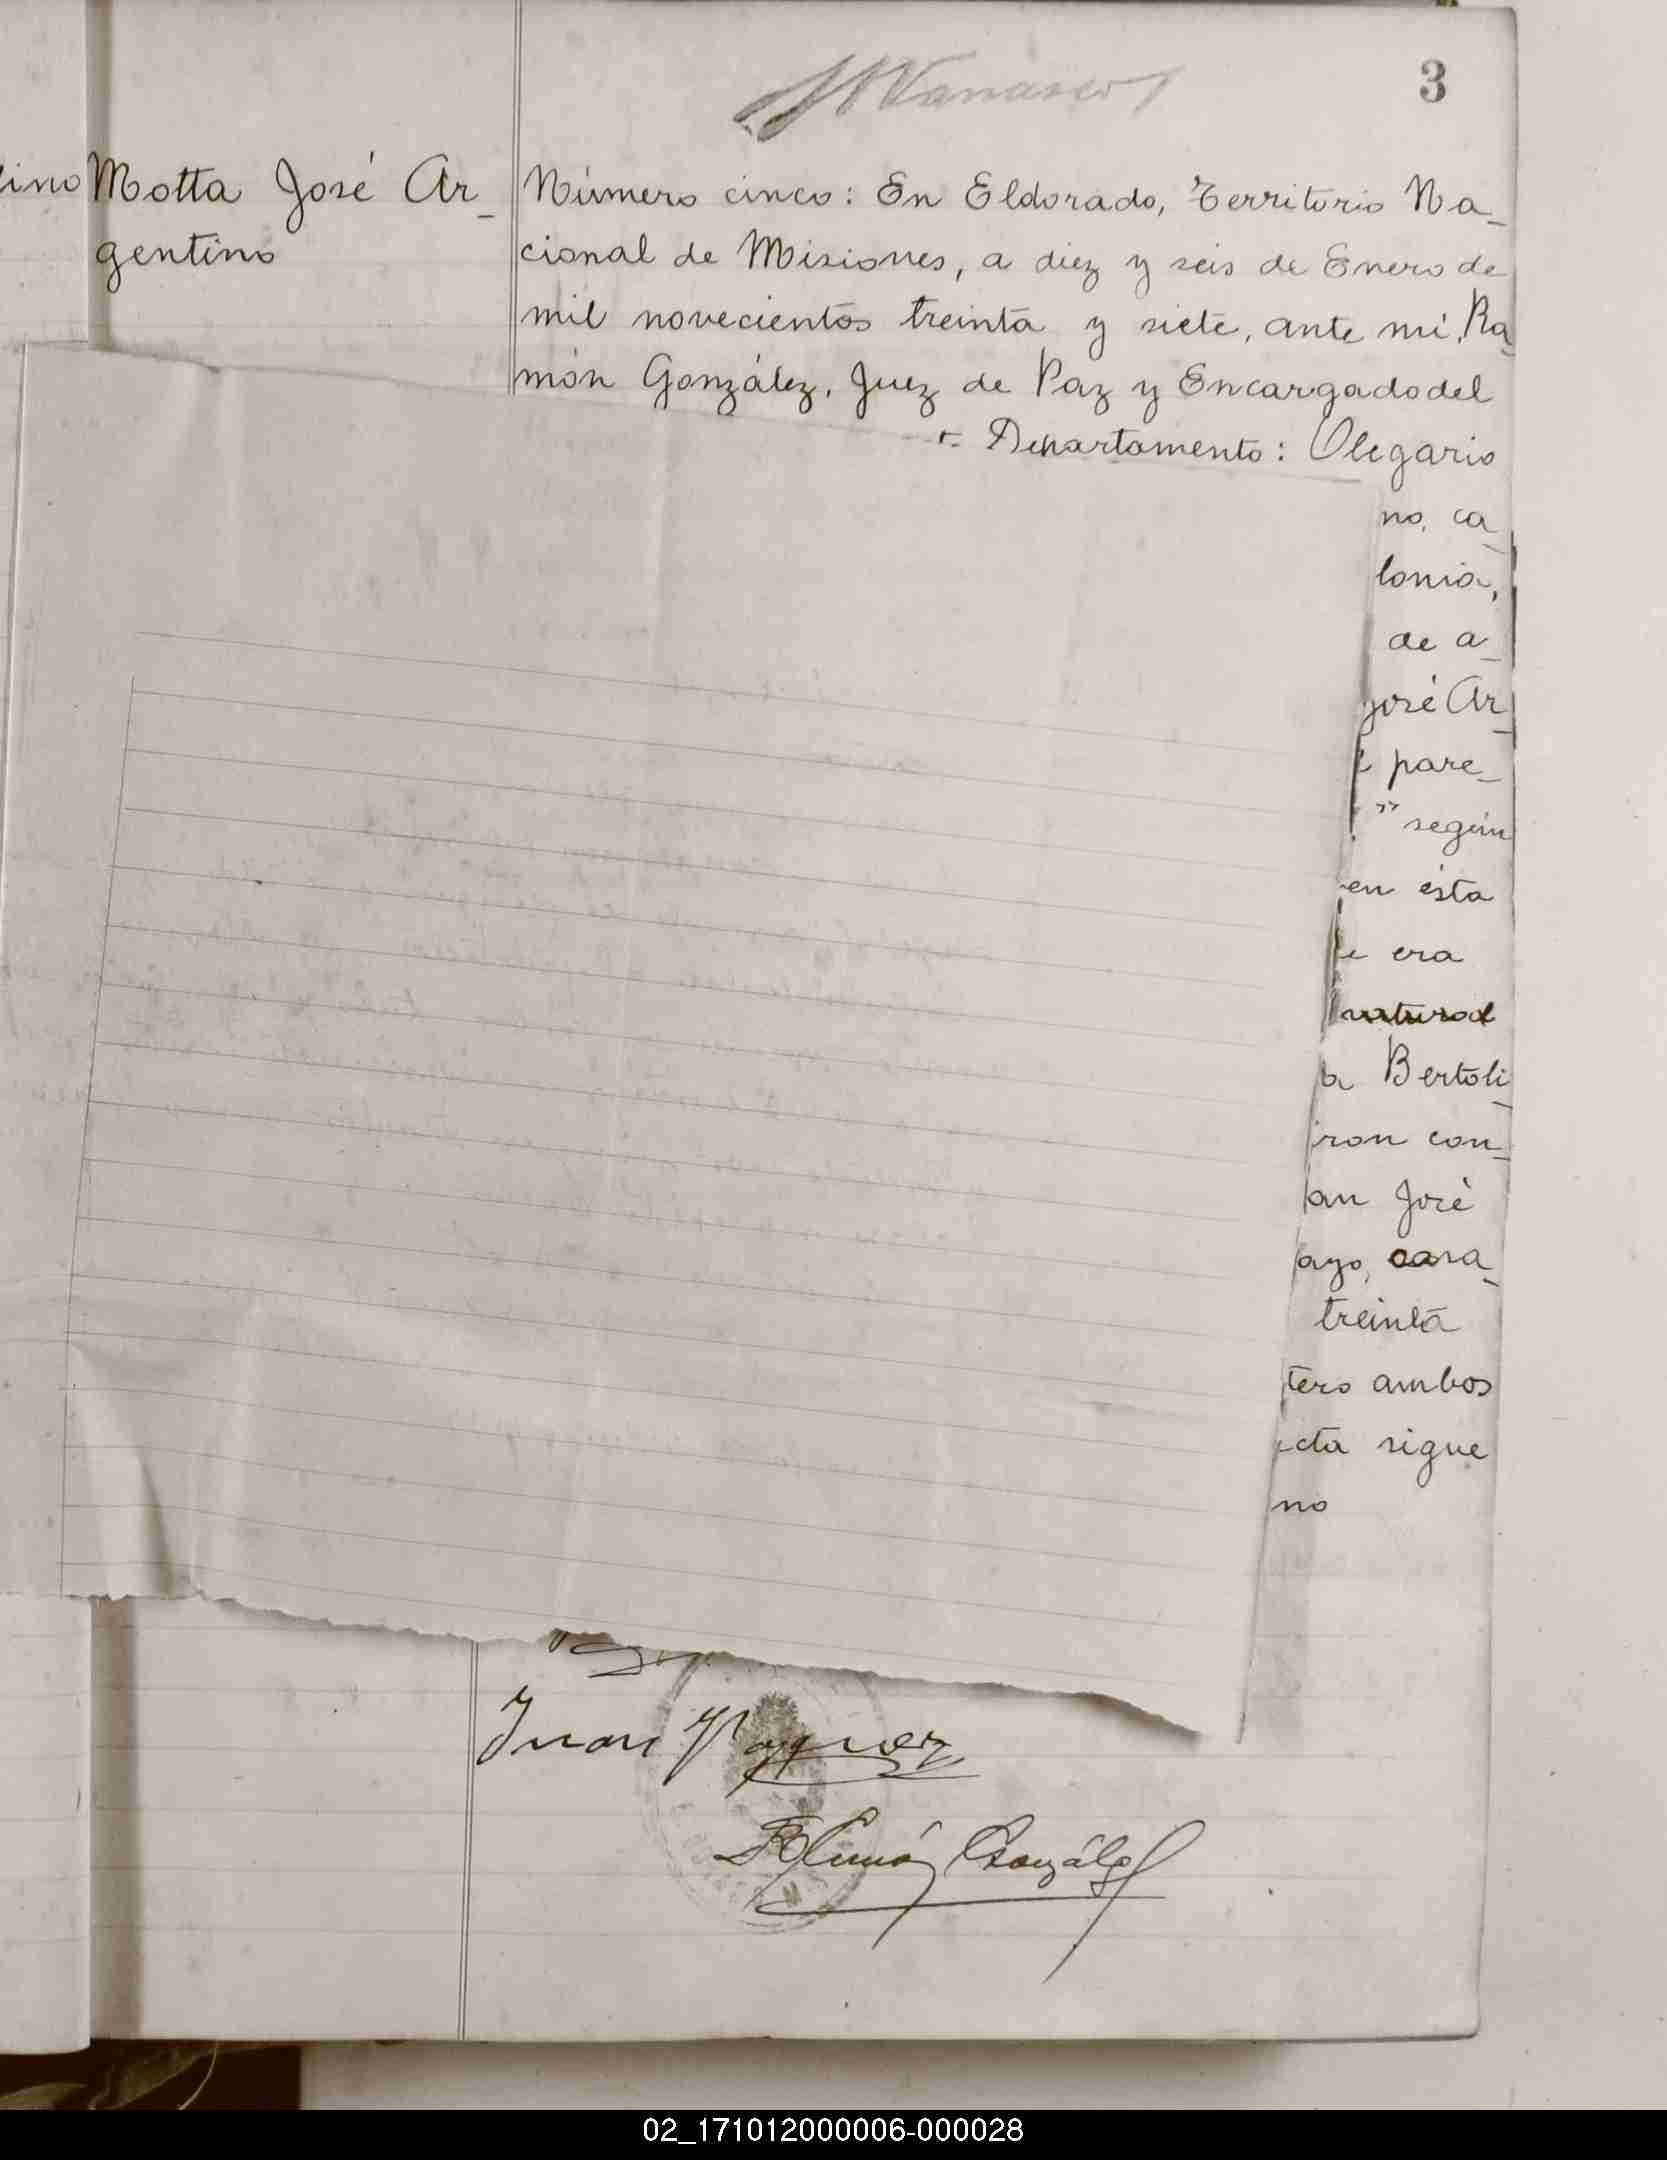 3
ino
Motta José Ar_
gentino
Número cinco: En Eldorado, Territorio Na_
cional de Misiones, a diez y seis de Enero de
mil novecientos treinta y siete, ante mí, Ra_
món González, Juez de Paz y Encargado del
Departamento: Olegario
no, ca_
lonia,
de a_
José Ar_
pare_
" según
en ésta
e era
natural
a Bertoli_
ron con_
an José
ayo, casa_
treinta
tero ambos
cta sigue
no
Juan
Ramón González
02_171012000006-000028